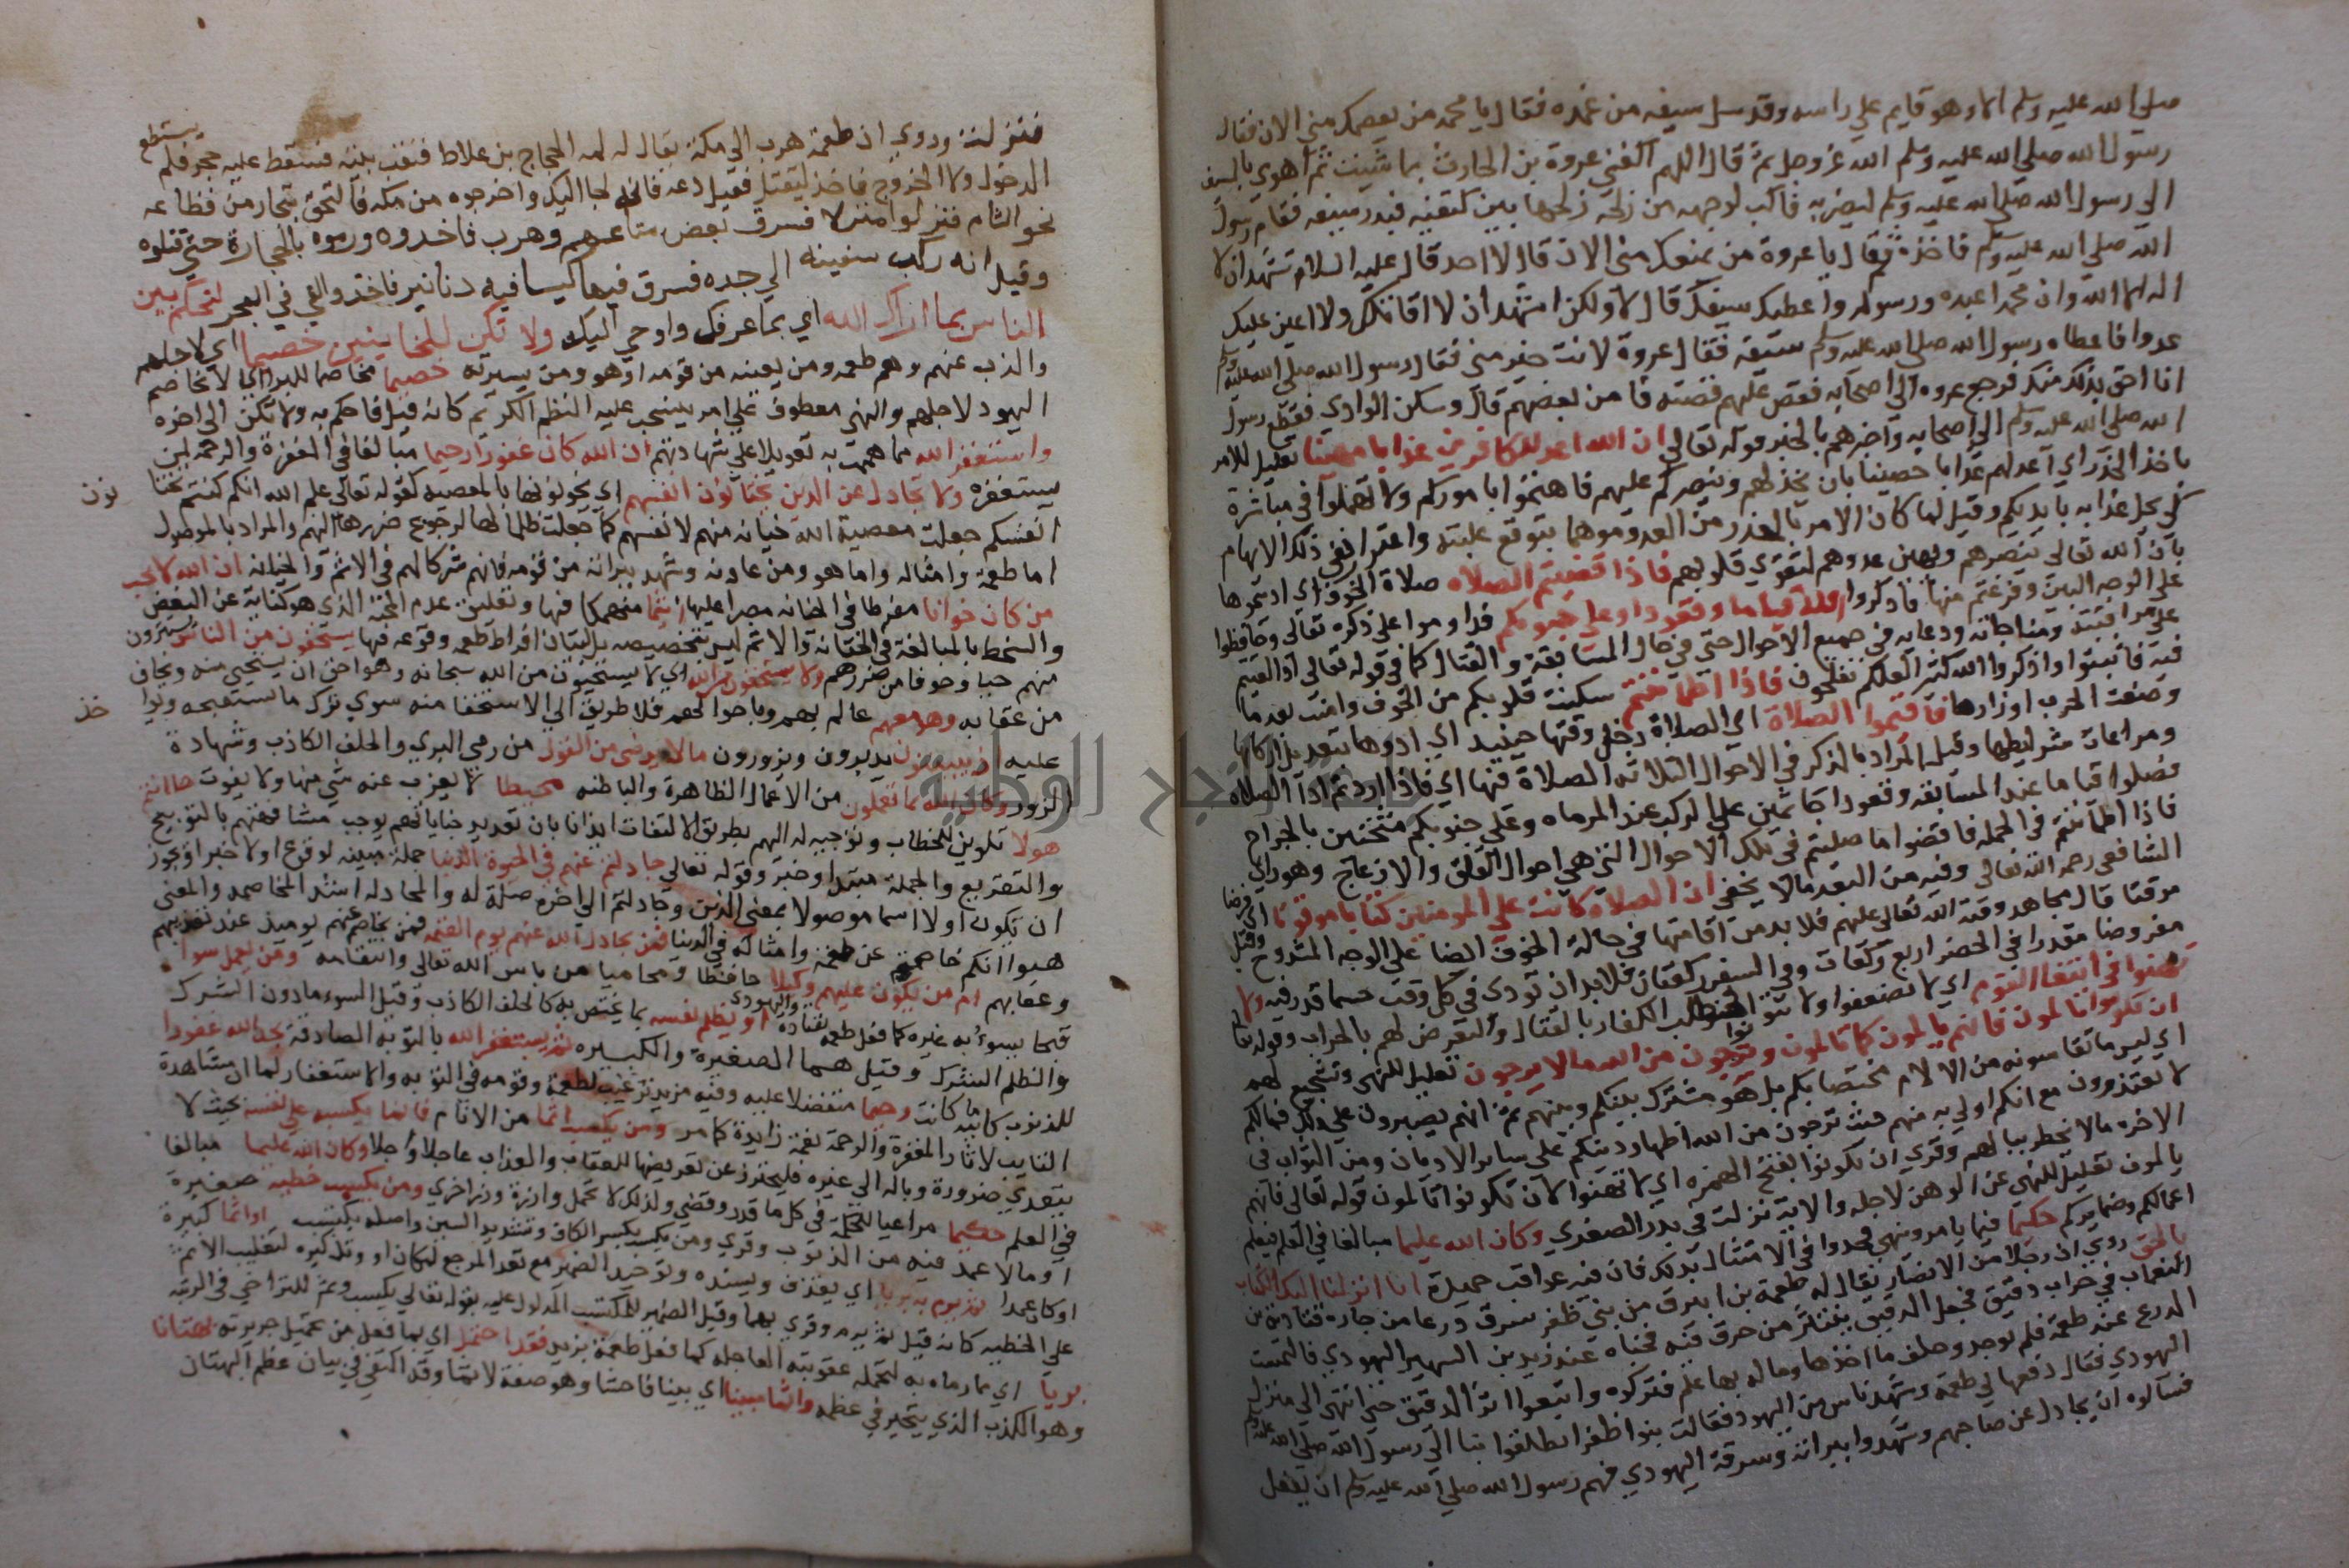 صلى الله عليه وسلم الا وهو قايم علي راسه وقد سل سيفه من غمده فقال يا محمد من يعصمك مني الان فقال
رسول الله صلي الله عليه وسلم الله عز وجل ثم قال اللهم اكفني عروة بن الحارث بما شيت ثم اهوي بالسيف
الى رسول الله صلي الله عليه وسلم ليضربه فاكب لوجهه من زلخة زلخها بين كتفيه فبدر سيفه فقام رسول
الله صلي الله عليه وسلم فاخذه ثم قال يا عروة من يمنعك مني الان قال لا احد قال عليه السلام تشهد ان لا
اله الا الله وان محمدا عبده ورسوله واعطيك سيفك قال لا ولكن اشهد ان لا اقاتلك ولا اعين عليك
عدوا فاعطاه رسول الله صلي الله عليه وسلم سيفه فقال عروة لانت خير مني فقال رسول الله صلي الله عليه وسلم
انا احق بذلك منك فرجع عروه الى اصحابه فقص عليهم قصته فامن بعضهم قال وسكن الوادي فقطع رسول
الله صلي الله عليه وسلم الي اصحابه واخبرهم بالخبر قوله تعالي ان الله اعد للكافرين عذابا مهينا تعليل للامر
باخذ الحذر اي اعد لهم عذابا مهينا بان يخذلهم وينصركم عليهم فاهتموا باموركم ولا تهملوا في مباشرة
كي يحل عذابه بايديكم وقيل لما كان الامر بالحذر من العدو موهما بتوقع غلبته واعتزازه نفي ذلك الايهام
بان الله تعالى ينصرهم ويهين عدوهم لتقوي قلوبهم فاذا قضيتم الصلاة صلاة الخوف اي اديتموها
على الوجه المبين وفرغتم منها فاذكروا الله قياما وقعودا وعلي جنوبكم فداوموا على ذكره تعالى وحافظوا
على مراقبته ومناجاته ودعايه في جميع الاحوال حتي في حال المسابقة والقتال كما في قوله تعالى اذا لقيتم
فية فاثبتوا واذكروا الله كثيرا لعلكم تفلحون فاذا اطماننتم سكنت قلوبكم من الخوف وامنت بعد ما
وضعت الحرب اوزارها فاقيموا الصلاة اي الصلاة دخل وقتها حينيذ اي ادوها بتعديل اركانها
ومراعات شرايطها وقيل المراد بالذكر في الاحوال الثلاثه الصلاة فيها اي فاذا اردتم ادا الصلاة
فصلوا قياما عند المسابقه وقعودا جاثمين على الركب عند المرماه وعلي جنوبكم مثخنين بالجراح
فاذا اطماننتم في الجمله فاقضوا ما صليتم في تلك الاحوال التي هي احوال القلق والانزعاج وهو راي
الشافعي رحمه الله تعالى وفيه من البعد ما لا يخفي ان الصلاة كانت علي المومنين كتابا موقوتا اي فرضا
موقتا قال مجاهد وقته الله تعالى عليهم فلا بد من اقامتها في حالة الخوف ايضا على الوجه المشروح وقيل
مفروضا مقدرا في الحضر اربع ركعات وفي السفر ركعتان فلا بد ان تودي في كل وقت حسما قدر فيه ولا
تهنوا في ابتغا القوم اي لا تضعفوا ولا تتوانوا في طلب الكفار بالقتال والتعرض لهم بالحراب وقوله تعالى
ان تكونوا تالمون فانهم يالمون كما تالمون وترجون من الله ما لا يرجون تعليل للنهي وتشجيع لهم
اي ليس ما تقاسونه من الالام مختصا بكم بل هو مشترك بينكم وبينهم ثم انهم يصبرون علي ذلك فما لكم
لا تصبرون مع انكم اولي به منهم حيث ترجون من الله اظهار دينكم على ساير الاديان ومن الثواب في
الاخره ما لا يخطر ببالهم وقري ان تكونوا بفتح الهمزه اي لا تهنوا لان تكونوا تالمون قوله تعالى فانهم
يالمون تعليل للنهي عن الوهن لاجله والاية نزلت في بدر الصغري وكان الله عليما مبالغا في العلم فيعلم
اعمالكم وضمايركم حكيما فيما يامر وينهي فجدوا في الامتثال بذلك فان فيه عواقب حميدة انا انزلنا اليك الكتاب
بالحق روي ان رجلا من الانصار يقال له طعمة بن ابيرق من بني ظفر سرق درعا من جاره قتادة بن
النعمان في جراب دقيق فجعل الدقيق ينتثر من خرق فيه فخباه عند زيد بن السهير اليهودي فالتمست
الدرع عند طعمة فلم توجد وحلف ما اخذها وما له بها علم فتركوه واتبعوا اثر الدقيق حتى انتهى الى منزل
اليهودي فقال دفعها لي طعمة وشهد ناس من اليهود فقالت بنوا ظفر انطلقوا بنا الى رسول الله صلي الله عليه وسلم
فسالوه ان يجادل عن صاحبهم وشهدوا ببراته وسرقة اليهودي فهم رسول الله صلي الله عليه وسلم ان يفعل
فنزلت وروي ان طعمة هرب الى مكة يقال له الحجاج بن علاط فنقب بيته فسقط عليه حجر فلم يستطع
الدخول ولا الخروج فاخذ ليقتل فقيل دعه فانه لجا اليك واخرجوه من مكه فالتحق بتجار من قظاعه
نحو الشام فنزلوا منزلا فسرق بعض متاعهم وهرب فاخذوه ورموه بالحجارة حتى قتلوه
وقيل انه ركب سفينه الي جده فسرق فيها كيسا فيه دنانير فاخذ والقي في البحر لتحكم بين
الناس بما اراك الله اي بما عرفك واوحي اليك ولا تكن للخاينين خصيما اي لاجلهم
والذب عنهم وهم طعمه ومن يعينه من قومه او هو ومن يسير بسيرته خصيما مخاصما للبرا اي لا تخاصم
اليهود لاجلهم والنهي معطوف علي امر ينسحب عليه النظم الكريم كانه قيل فاحكم به ولا تكن الى اخره
واستغفر الله مما هممت به تعويلا علي شهادتهم ان الله كان غفورا رحيما مبالغا في المغفرة والرحمة لمن
يستغفره ولا تجادل عن الذين يختانون انفسهم اي يخونونها بالمعصيه كقوله تعالى علم الله انكم كنتم تختا
نون
انفسكم جعلت معصية الله خيانه منهم لانفسهم كما جعلت ظلما لها لرجوع ضررها اليهم والمراد بالموصول
اما طعمة وامثاله واما هو ومن عاونه وشهد ببراته من قومه فانهم شركا لهم في الاثم والخيانه ان الله لا يحب
من كان خوانا مفرطا في الخيانه مصرا عليها اثيما منهمكا فيها وتعليق عدم المحبة الذي هو كناية عن البغض
والسخط بالمبالغة في الخيانة والاثم ليس لتخصيصه بل لبيان افراط طعمه وقومه فيها يستخفون من الناس يستترون
منهم حيا وخوفا من ضررهم ولا يستخفون من الله اي لا يستحيون من الله سبحانه وهو احق ان يستحيي منه ويخاف
من عقابه وهو معهم عالم بهم وباحوالهم فلا طريق الى الاستخفا منه سوي ترك ما يستقبحه ويوا
خذ
عليه اذ يبيتون يدبرون ويزورون ما لا يرضى من القول من رمي البري والحلف الكاذب وشهادة
الزور وكان الله بما تعملون من الاعمال الظاهرة والباطنه محيطا لا يعزب عنه شي منها ولا يفوت ها انتم
هولا تلوين للخطاب وتوجيه له اليهم بطريق الالتفات ايذانا بان تعديد جناياتهم يوجب مشافهتهم بالتوبيخ
والتقريع والجملة مبتدا وخبر وقوله تعالي جادلتم عنهم في الحيوة الدنيا جملة مبينه لوقوع اولا خبرا ويجوز
ان تكون اولا اسما موصولا بمعنى الذين وجادلتم الى اخره صلة له والمجادله اشد المخاصمه والمعني
هبوا انكم خاصمتم عن طعمة وامثاله في الدنيا فمن يجادل الله عنهم يوم القيمه فمن يخاصم عنهم يوميذ عند تعذيبهم
وعقابهم ام من يكون عليهم وكيلا حافظا ومحاميا من باس الله تعالى وانتقامه ومن يعمل سوا
قبيحا يسوء به غيره كما فعل طعمه بقتادة واليهودي او يظلم نفسه بما يختص به كالحلف الكاذب وقيل السوء ما دون الشرك
والظلم الشرك وقيل هما الصغيرة والكبيره ثم يستغفر الله بالتوبه الصادقة يجد الله غفورا
للذنوب كائنة ما كانت رحيما متفضلا عليه وفيه مزيد ترغيب لطعمة وقومه في التوبه والاستغفار لما ان مشاهدة
التايب لاثار المغفرة والرحمة نعمة زايدة كما مر ومن يكسب اثما من الاثام فانما يكسبه على نفسه بحيث لا
يتعدي ضرورة وباله الي غيره فليحترز عن تعريضها للعقاب والعذاب عاجلا واجلا وكان الله عليما مبالغا
في العلم حكيما مراعيا للحكمة في كل ما قدر وقضي ولذلك لا تحمل وازرة وزر اخري ومن يكسب خطيه صغيرة
او ما لا عمد فيه من الذنوب وقري ومن يكسب بكسر الكاف وتشديد السين واصله يكتسب او اثما كبيرة
او كان عمدا ثم يرم به بريا اي يقذف ويسنده وتوحيد الضمير مع تعدد المرجع لمكان او وتذكيره لتغليب الاثم
على الخطيه كانه قيل ثم يرم به وقري بهما وقيل الضمير للمكتسب المدلول عليه بقوله تعالى يكسب وثم للتراخي في الرتبة
بريا اي مما رماه به لتحمله عقوبته العاجله كما فعل طعمة بزيد فقد احتمل اي بما فعل من تحميل جريرته بهتانا
وهو الكذب الذي يتحير في عظمه واثما مبينا اي بينا فاحشا وهو صفة لاثما وقد اكتفي في بيان عظم البهتان
جامعة النجاح الوطنية